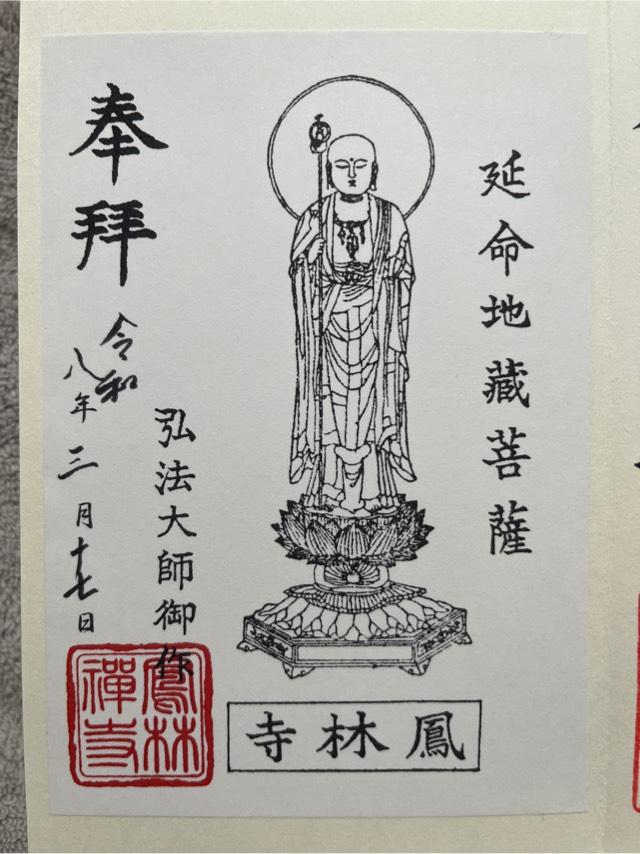 延命地藏菩薩
弘法大師御作
奉拜
令和
八年三月十七日
鳳林寺
鳳林
禪寺